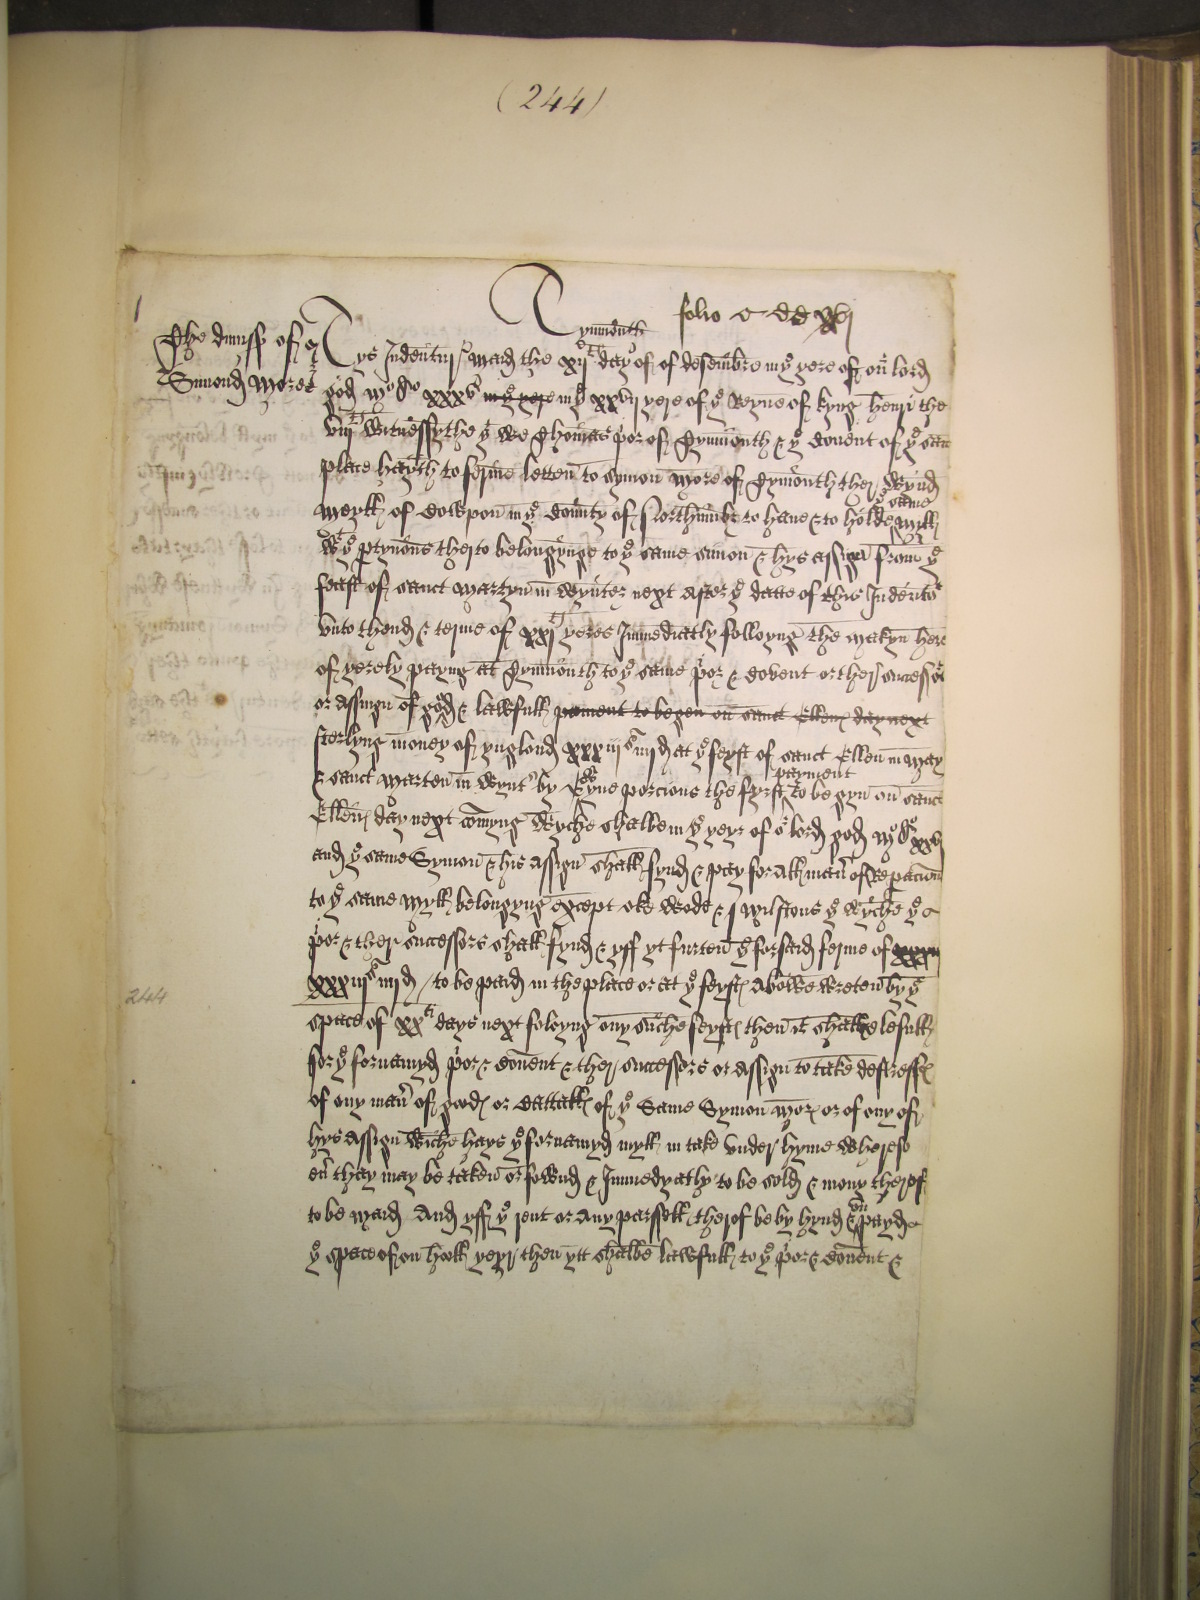 (244)
Tynmouth
folio
The dimisse of
Simond More
Tys Indentur mayd the xii th day of of desembre in yͤ yere of our lord
god mo do xxxv in yͤ yere in yͤ xxvii yere of yͤ Reyne of kyng henri the
viii th Witnessythe yt we Thomas prior of Tynmouth & yͤ Covent of yͤ sam
place hayth to ferme letten to Symon More of Tynmouth ther Wynd
Meyll of Cowpon in yͤ Counte of Northumbr to have & to holde yͤ same myll
wt yͤ ptynons therto belongynge to yͤ same Simon & hys assign from yͤ
feast of sanct Martyn in Wynter next After yͤ date of this Indentor
unto thend & terme of xxi ti yeres Immediatly folloyng the makyn here
of yerely payng at Tynmouth to yͤ same prior & Covent or ther successor
or Assign of good & lawfull pament to begen on sanct Ellens day next
sterlyng money of yngland xxxiii s iiij d at yͤ feyst of sanct Ellen in May
& sanct Marten in Wynt by Evyne porcions the fyrst payment to begyn on sanct
Ellens day next comyng Wyche shalbe in yͤ yeyr of or lord god mo do xxxvj
and yͤ same Symon & his Assign shall fynd & pay for All man of Repacion
to yͤ same Myll belongyng except oke wode & Milstons yͤ Wyche yͤ
prior & ther successors shall fynd & yff yt furten yͤ forsaid ferme of
xxxiii s iiij d / to be paid in the place or at yͤ feysts Abowe wreten by yͤ
space of xx ti days next foloyng ony suche feysts then it shalbe lefull
for yͤ fornamyd prior & Covent & ther successors or Assign to take destress
of ony man of goods or Cattalls of yͤ Same Symon More or of ony of
hys Assign Wiche hays yͤ fornamyd myll in take under hyme Wherso
en thay may be taken or fownd & Immedyatly to be sold & mony therof
to be Mayd And yff yͤ rent or Any parssell therof be by hynd & on payd
yͤ space of on holl yeyr then ytt shalbe lawfull to yͤ prior & Covent &
244